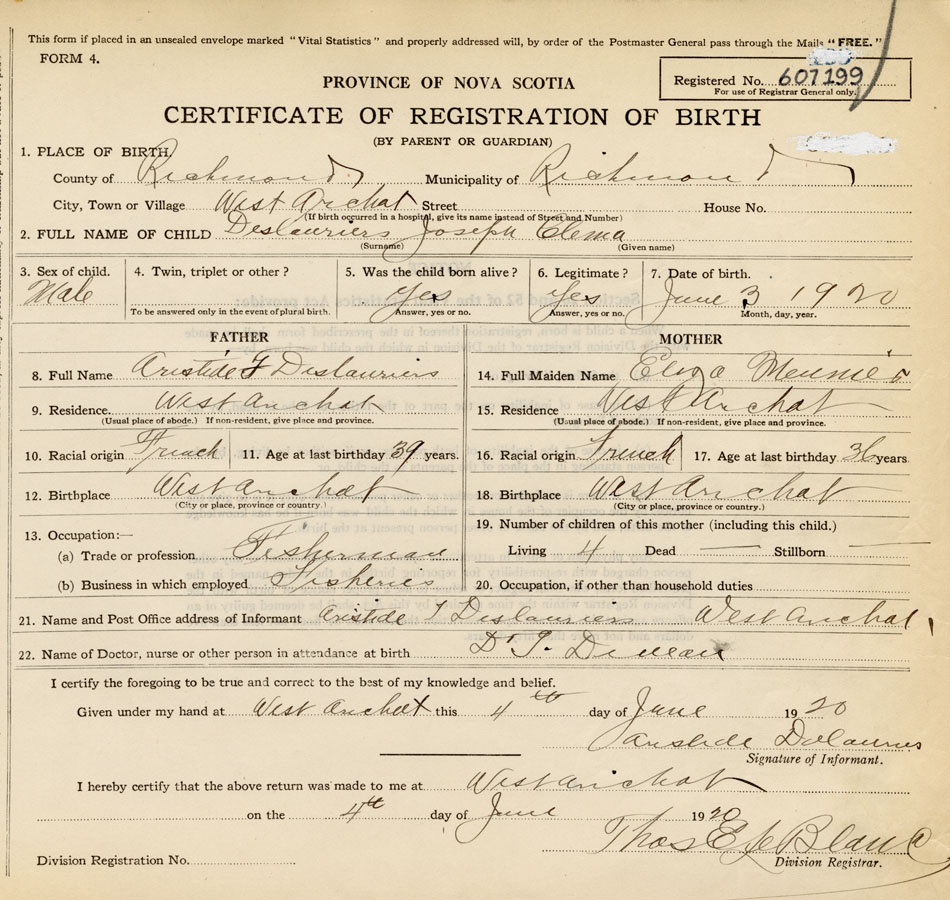 This form if placed in an unsealed envelope marked "Vital Statistics" and properly addressed will, by order of the Postmaster General pass through the Mails "FREE."
FORM 4.
Registered No. 607199
For use of Registrar General only.
PROVINCE OF NOVA SCOTIA
CERTIFICATE OF REGISTRATION OF BIRTH
(BY PARENT OR GUARDIAN)
1. PLACE OF BIRTH,
County of Richmond Municipality of Richmond
City, Town or Village West Arichat Street House No.
(If birth occurred in a hospital, give its name instead of Street and Number)
2. FULL NAME OF CHILD Deslauriers Joseph Elema
(Surname) (Given name)
3. Sex of child. 4. Twin, triplet or other? 5. Was the child born alive? 6. Legitimate? 7. Date of birth.
Male Yes Yes June 3 1920
To be answered only in the event of plural birth. Answer, yes or no. Answer, yes or no. Month, day, year.
FATHER MOTHER
8. Full Name Aristide F Deslauriers 14. Full Maiden Name Eliza
9. Residence. West Arichat 15. Residence West Arichat
(Usual place of abode.) If non-resident, give place and province. (Usual place of abode.) If non-resident, give place and province.
10. Racial origin French 11. Age at last birthday 39 years. 16. Racial origin French 17. Age at last birthday 36 years.
12. Birthplace West Arichat 18. Birthplace West Arichat
(City or place, province or country.) (City or place, province or country.)
13. Occupation:— 19. Number of children of this mother (including this child.)
(a) Trade or profession Fisherman Living 4 Dead — Stillborn —
(b) Business in which employed Fisheries 20. Occupation, if other than household duties
21. Name and Post Office address of Informant Aristide F Deslauriers West Arichat
22. Name of Doctor, nurse or other person in attendance at birth Dr
I certify the foregoing to be true and correct to the best of my knowledge and belief.
Given under my hand at West Arichat this 4th day of June 1920
Aristide Deslauriers
Signature of Informant.
I hereby certify that the above return was made to me at West Arichat
on the 4th day of June 1920
Thos E LeBlanc
Division Registration No. Division Registrar.